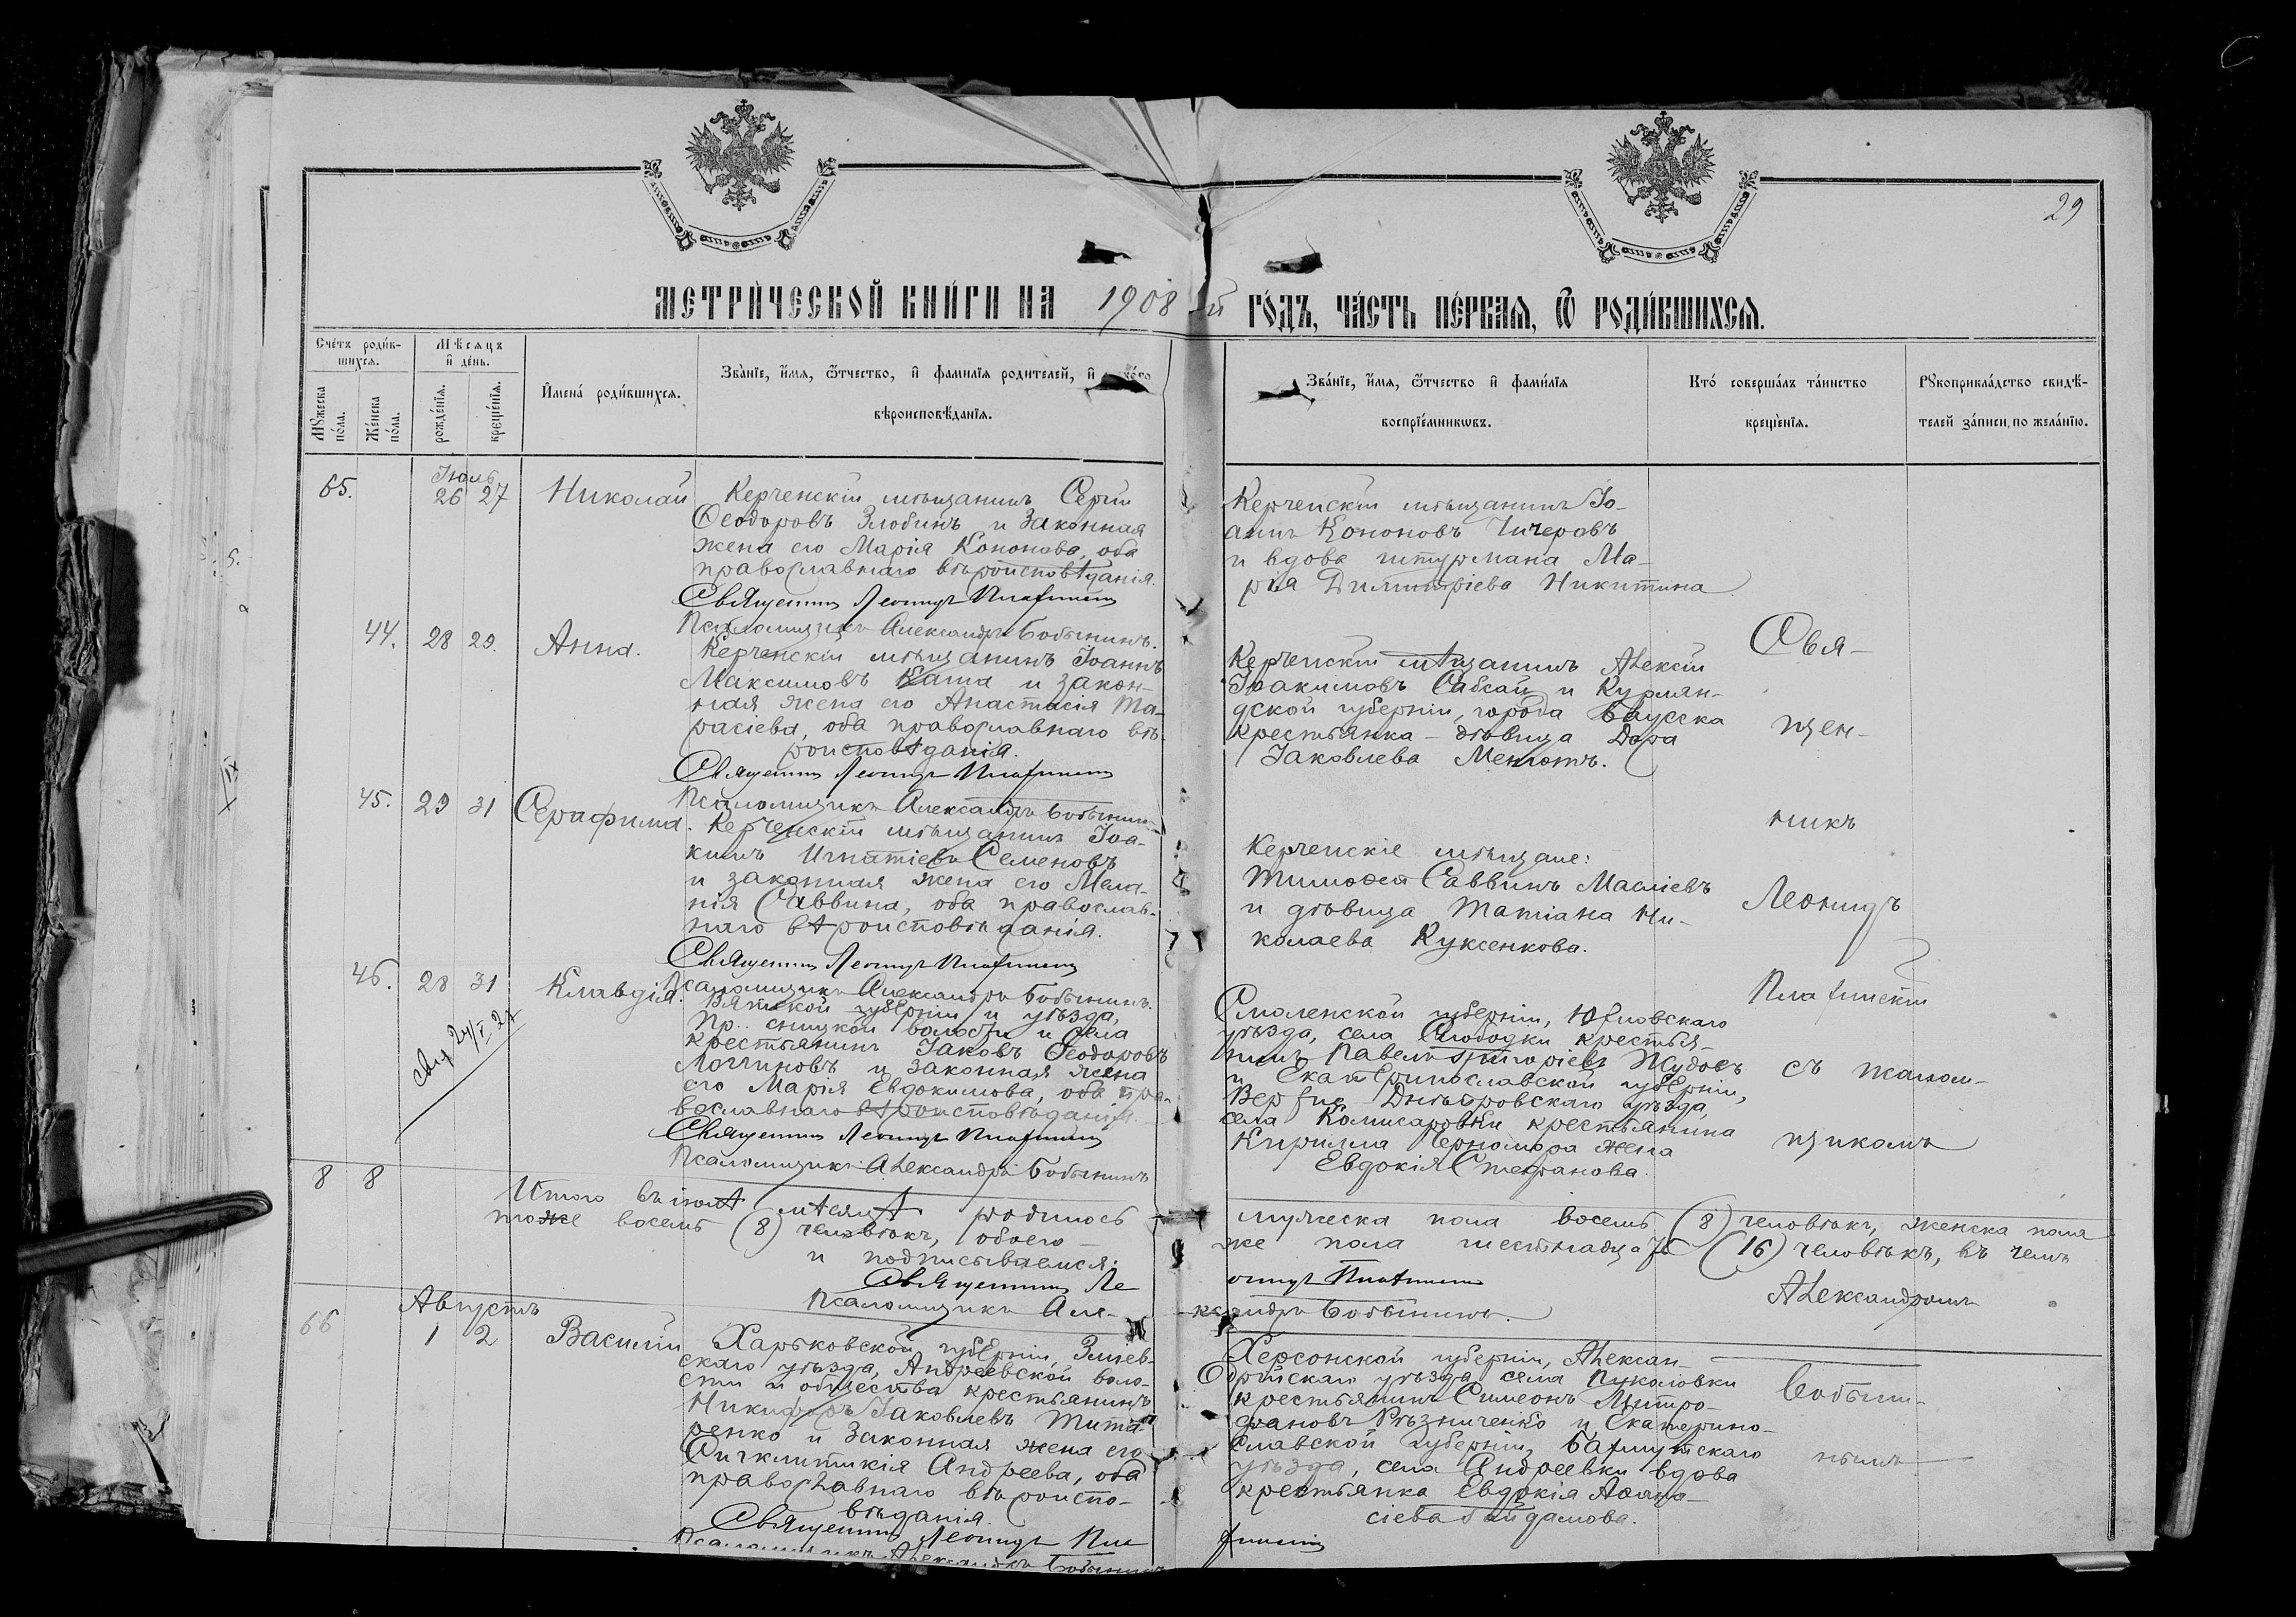 29
МЕТРИЧЕСКОЙ КНИГИ НА 1908 й ГОДЪ, ЧАСТЬ ПЕРВАЯ, Ѿ РОДИВШИХСЯ.
Счетъ родив-
шихся.
Мужеска
пола.
Женска
пола.
Мѣсяцъ
и день.
рожденія.
крещенія.
Имена родившихся.
Званіе, имя, ѿчество, и фамилія родителей, и
вѣроисповѣданія.
Званіе, имя, ѿчество и фамилія
воспріемникѡвъ.
Кто совершалъ таинство
крещенія.
Рукоприкладство свидѣ-
телей записи, по желанію.
65.
Іюль
26 27
Николай
Керченскій мѣщанинъ Сергій
Ѳеодоровъ Злобинъ и законная
жена его Марія Кононова, оба
православнаго вѣроисповѣданія.
Священникъ Леонидъ
Псаломщикъ Александръ Бобынинъ.
Керченскій мѣщанинъ Іо-
аннъ Кононовъ Чичеровъ
и вдова штурмана Ма-
рія Димитріева Никитина
44. 28 29. Анна.
Керченскій мѣщанинъ Іоаннъ
Максимовъ Каша и закон-
ная жена его Анастасія Та-
расіева, оба православнаго вѣ-
роисповѣданія.
Священникъ Леонидъ
Псаломщикъ Александръ Бобынинъ
Керченскій мѣщанинъ Алексій
Іоакимовъ Сабсай и Курлян-
дской губерніи, города Бауска
крестьянка - дѣвица Дора
Іаковлева
45. 29 31 Серафима.
Керченскій мѣщанинъ Іоа-
кимъ Игнатіевъ Семеновъ
и законная жена его Мела-
нія Саввина, оба православ-
наго вѣроисповѣданія.
Священникъ Леонидъ
Псаломщикъ Александръ Бобынинъ.
Керченскіе мѣщане:
Тимоѳей Саввинъ Маслієвъ
и дѣвица Татіана Ни-
колаева Куксенкова.
46. 28 31 Клавдія.
Вятской губерніи и уѣзда,
волости и села
крестьянинъ Іаковъ Ѳеодоровъ
Логгиновъ и законная жена
его Марія Евдокимова, оба пра-
вославнаго вѣроисповѣданія.
Священникъ Леонидъ
Псаломщикъ Александръ Бобынинъ
Смоленской губерніи, Юхновскаго
уѣзда, села Слободки крестья-
нинъ Павелъ Григоріевъ Жудовъ
и Екатеринославской губерніи,
Верхне-Днѣпровскаго уѣзда,
села Комисаровки крестьянина
Кирилла Черномора жена
Евдокія Стефанова.
Свя-
щен-
никъ
Леонидъ
съ псалом-
щикомъ
Александромъ
Бобыни-
нымъ
8 8
Итого въ іюлѣ мѣсяцѣ родилось мужеска пола восемь (8) человѣкъ, женска пола
тоже восемь (8) человѣкъ, обоего же пола шестнадцать (16) человѣкъ, въ чемъ
и подписываемся:
Священникъ Леонидъ
Псаломщикъ Александръ Бобынинъ.
66
Августъ
1 2
Василій
Харьковской губерніи, Зміев-
скаго уѣзда, Андреевской воло-
сти и общества крестьянинъ
Никифоръ Іаковлевъ Тита-
ренко и законная жена его
Сигклитикія Андреева, оба
православнаго вѣроиспо-
вѣданія.
Священникъ Леонидъ
Псаломщикъ Александръ Бобынинъ
Херсонской губерніи, Алексан-
дрійскаго уѣзда, села Пукаловки
крестьянинъ Симеонъ Митро-
фановъ Рѣзниченко и Екатерино-
славской губерніи, Бахмутскаго
уѣзда, села Андреевки вдова
крестьянка Евдокія Аѳана-
сіева Гайдамова.